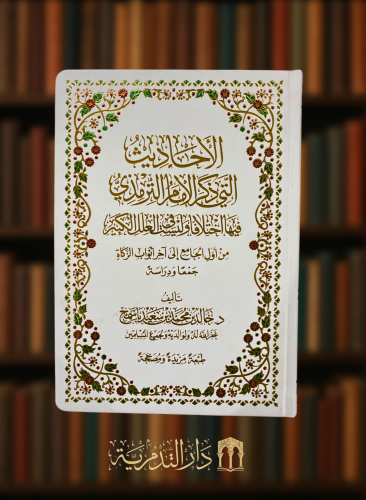 الأحاديث
التي ذكر الإمام الترمذي
فيها اختلافا وليست في العلل الكبير
من أول الجامع إلى آخر أبواب الزكاة
جمعا ودراسة
تأليف
د. خالد بن محمد بن سعيد باسمح
غفر الله له ولوالديه ولجميع المسلمين
طبعة مزيدة ومصححة
دار التدمرية